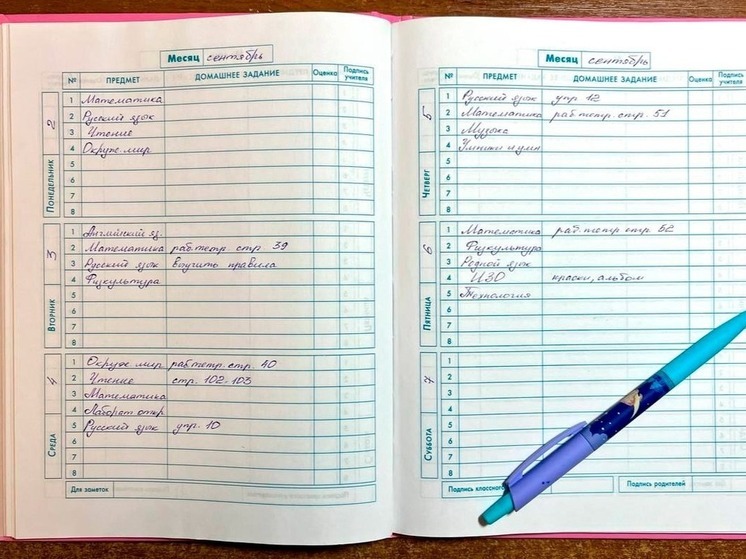 Месяц сентябрь
№ ПРЕДМЕТ ДОМАШНЕЕ ЗАДАНИЕ Оценка Подпись учителя
ПОНЕДЕЛЬНИК 2
1 Математика
2 Русский язык
3 Чтение
4 Окруж. мир
5
6
7
8
ВТОРНИК 3
1 Английский яз.
2 Математика раб. тетр. стр 39
3 Русский язык выучить правила
4 Физкультура
5
6
7
8
СРЕДА 4
1 Окруж. мир раб. тетр. стр. 40
2 Чтение стр. 102-103
3 Математика
4 Лаборат. откр
5 Русский язык упр. 10
6
7
8
Для заметок
Месяц сентябрь
№ ПРЕДМЕТ ДОМАШНЕЕ ЗАДАНИЕ Оценка Подпись учителя
ЧЕТВЕРГ 5
1 Русский язык упр 12
2 Математика раб тетр. стр. 51
3 Музыка
4 Умники и умн
5
6
7
8
ПЯТНИЦА 6
1 Математика раб тетр стр 52
2 Физкультура
3 Родной язык
4 ИЗО краски, альбом
5 Технология
6
7
8
СУББОТА 7
1
2
3
4
5
6
7
8
Подпись классного
Подпись родителей